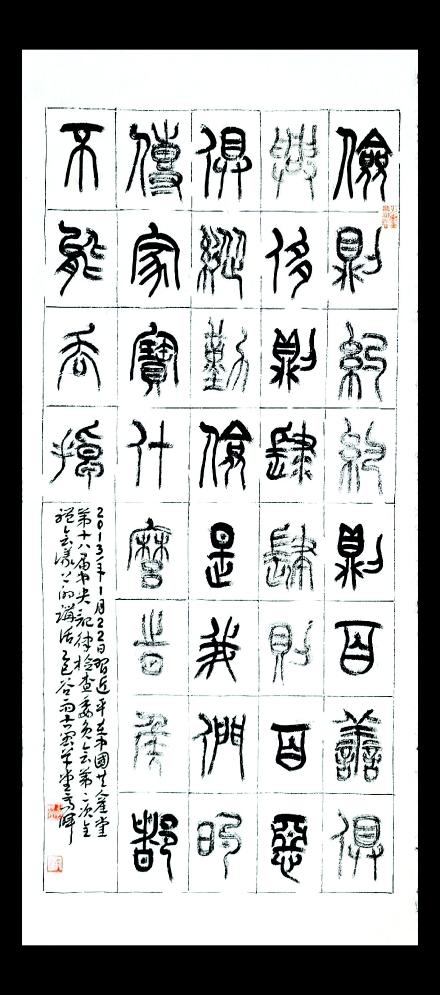 儉則約約則百善俱
興侈則肆肆則百惡
俱縱勤儉是我們的
傳家寶什麼時候都
不能丟掉
2013年1月22日習近平在中國共產黨
第十八屆中央記律檢查委員會第二次全
體會議上的講話